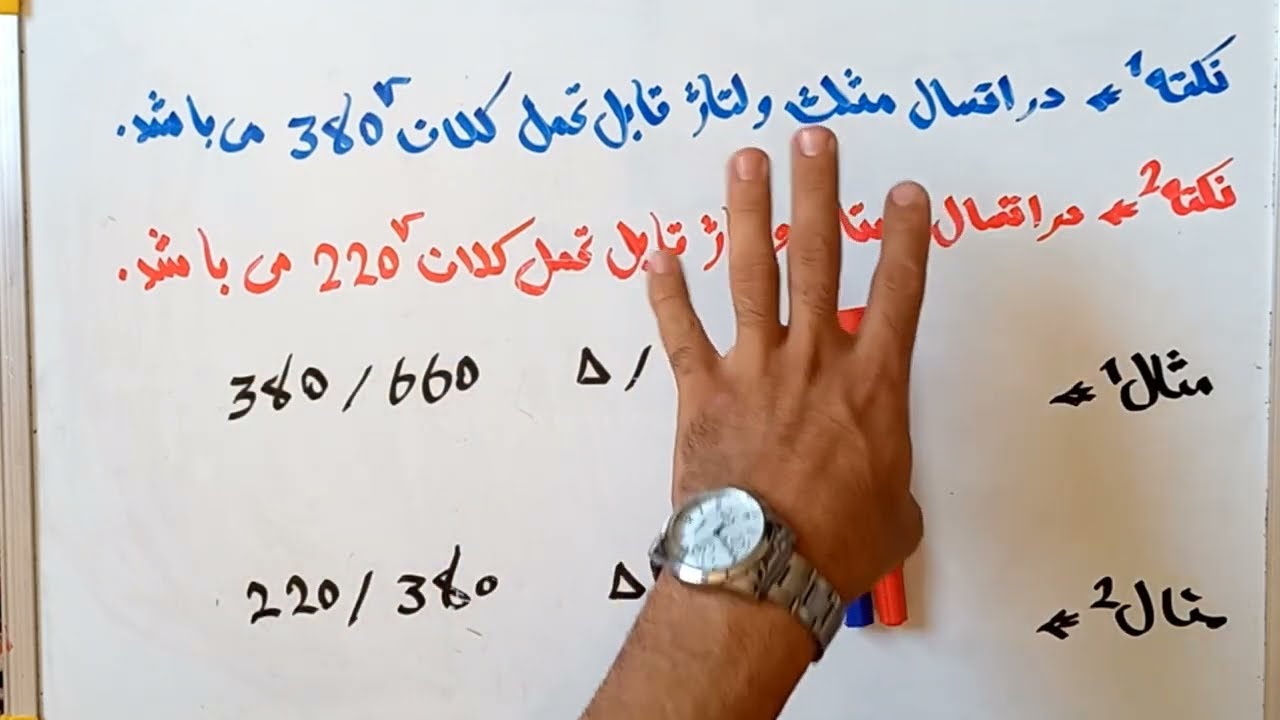 نکته 1 ← در اتصال مثلث ولتاژ قابل تحمل کلاف 380v می باشد.
نکته 2 ← در اتصال قابل تحمل کلاف 220v می باشد.
مثال 1 ← Δ / 380 / 660
مثال 2 ← Δ 220 / 380